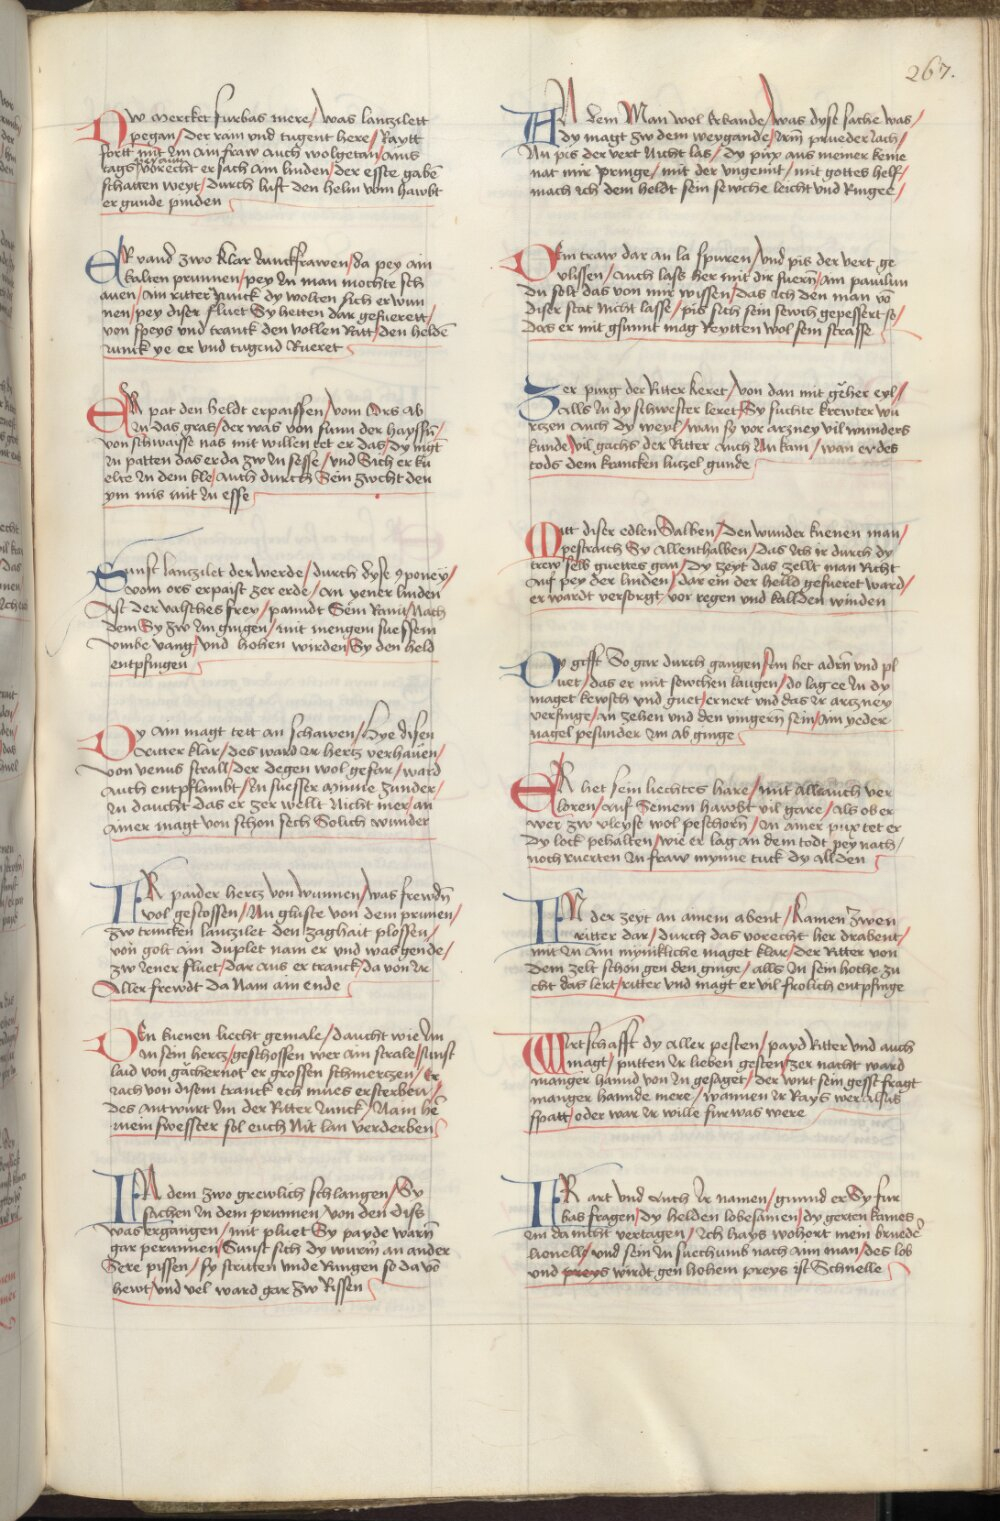 267.
Nw mercket furbas mere / was lanczilett
pegan / Der ram vnd tugent here / Raytt
fortt mit Im ain fraw auch wolgetan / ains
tags vorecht er sach ain linden / der esste gabn̄
schatten weyt / durch luft den helm vom hawbt
er gunde pinden
Er vand zwo klar Junckfrawen / da pey ain
kalten prunnen / pey In man mochte sch
auen / ain ritter Junck dy wolten sich er wun
nen / pey diser fluet Sy hetten dar gefuerett /
von speys vnd tranck den vollen Ratt / den helde͞
Junck ye er vnd tugend Rueret
Er pat den heldt erpaissen / vom Ors ab
In das gras / der was von sunn der hayssn̄ /
von schwaysse nas mit willen tet er das / dy magt
In patten das er da zw In sesse / vnd Sich er ku
elte In dem kle / auch durch Sein zwcht den
ym mis mit In esse
Sunst lanczilet der werde / durch dyse ꝯponey /
vom ors erpaist zer erde / an yener linden
Ast der valsches frey / panndt Sein Ravit / Nach
dem Sy zw Im gingen / mit mengem suessem
vmbe vang / vnd hohen wirden / Sy den held
entpfingen
Dy ain magt tett an schawen / Hye disen
Ritter klar / des ward Ir hercz verhauen /
von venus strall / der degen wol gefar / ward
auch entpflambt / In suesser Minne zunder /
In daucht das er zer wellt Nicht mer / an
ainer magt von schon sech Solich wunder
Ir paider hercz von wunnen / was frewdn̄
vol gestossen / Nu gluste von dem prunen /
zw trincken lanczilet den zaghait plossen /
von golt ain duplet nam er vnd was gende /
zw Jener fluet / dar aus er tranck / da von Ir
Aller frewdt Da Nam ain ende
Den kuenen liecht gemale / daucht wie Im
an sein hercz / geschossen wer ain strale / sunst
laid von gachernot er grossen schmerczen / Er
rach von disem tranck ich mues ersterben /
Des antwurt Im der Ritter Junck / Nain he͞
mein swesster sol euch Nit lan verderben
In dem zwo grewlich schlangen / Sy
sachen In dem prunnen / von den diss
was ergangen / mit pluet Sy payde warn̄
gar perunnen / Sunst sich dy wurm an ander
Sere pissen / sy stritten vnde Rungen so da vo͞
hewt / vnd vel ward gar zw Rissen
An dem Man wol erkande / was dyse sache was /
dy magt zw dem weygande / Irm prueder Jach /
Nu pis der vert Nicht las / dy pux aus meiner keme
nat mir pringe / mit der vngemt / mit gottes helf /
mach ich dem heldt sein sewche leicht vnd Ringe /
Dem traw dar an la spuren / vnd pis der vert ge
vlissen / auch lass her mit dir fuern̄ / ain pauilun
du solt das von mir wissen / das ich den man vo͞
diser stat Nicht lasse / pis sich sein sewch gepessert so /
Das er mit gsunnt mag Reytten wol sein strasse
Zer purg der Ritter keret / von dan mit geher eyl /
Alls In dy schwester leret / Sy suchte krewter wu
rczen auch dy weyl / wan sy vor arzney vil wunders
kunde / vil gachs der Ritter auch Nu kam / wan er des
tods dem krancken luczel gunde
Mitt diser edlen Salben / Den wunder kuenen man /
pestraich Sy allenthalben / Das ich ir durch dy
trew selb guettes gan / Dy zeyt das zellt man Richt
auf pey der linden / dar ein der heild gefueret ward /
er wardt versorgt / vor regen vnd kallden winden
Dy gifft So gar durch gangen / Im het adrn̄ vnd pl
uet / das er mit sewchen langen / do lag ee In dy
maget kewsch vnd guet / ernert vnd das Ir arczney
verfinge / an zehen vnd den vingern̄ sein / Im yeder
nagel pesunder Im ab ginge
Er het sein liechtes hare / mit all auch ver
loren / auf Seinem hawbt vil gare / als ob er
wer zw vleyse wol peschorn̄ / In ainer pux tet er
dy lock pehalten / wie er lag an dem todt pey nach /
noch ruerten In fraw mynne tuck dy allden
In der zeyt an ainem abent / kamen zwen
ritter dar / durch das vorecht her drabent /
mit In ain mynikliche maget klar / der Ritter von
dem zelt schon gen den ginge / alls In sein hoche zu
cht das lert / ritter vnd magt er vil frolich entpfinge
Wirtschafft dy aller pesten / payd Ritter vnd auch
magt / putten Ir lieben gesten / zer nacht ward
manger hannd von In gesaget / der wirt sein gesst fragt
manger hannde mere / wannen Ir Rays wer alsus
spatt / oder war Ir wille furwas were
Ir art vnd auch Ir namen / gunnd er Sy fur
bas fragen / dy helden lobesamen / dy gerten kames
Im da nicht vertagen / Ich hays wohort mein bruede͞
lionelle / vnd sein In suechumb nach aim man / des lob
vnd preys wirdt gen hohem preys ist Schnelle